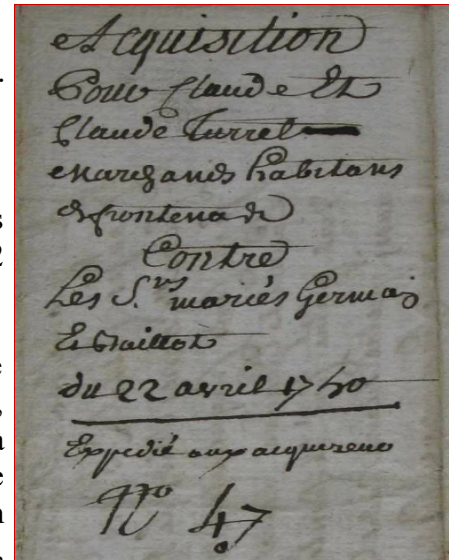 Acquisition
Pour Claude Et
Claude Turrel
Marchands habitans
de frontenade
Contre
Les S.rs mariés Germain
Et
du 22 avril 1740
Expedié aux acquereurs
No 47